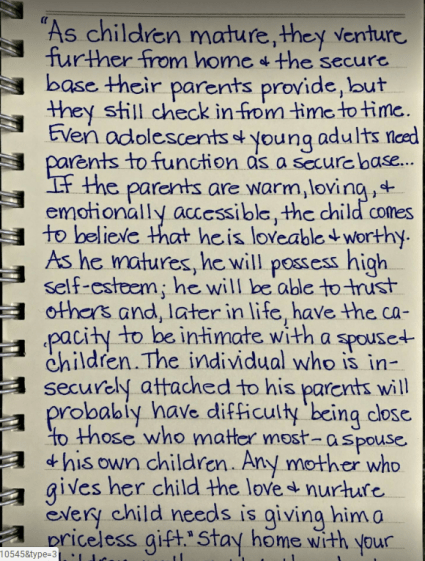 "As children mature, they venture
further from home & the secure
base their parents provide, but
they still check in from time to time.
Even adolescents & young adults need
parents to function as a secure base...
If the parents are warm, loving, &
emotionally accessible, the child comes
to believe that he is loveable & worthy.
As he matures, he will possess high
self-esteem; he will be able to trust
others and, later in life, have the ca-
pacity to be intimate with a spouse &
children. The individual who is in-
securely attached to his parents will
probably have difficulty being close
to those who matter most - a spouse
& his own children. Any mother who
gives her child the love & nurture
every child needs is giving him a
priceless gift." Stay home with your
10545&type=3